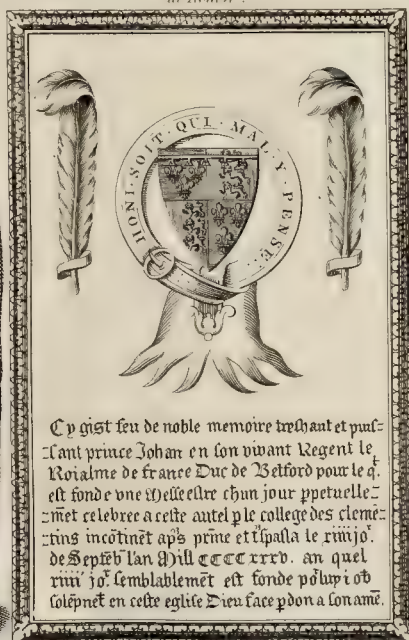 HONI · SOIT · QUI · MAL · Y · PENSE ·
Cy gist feu de noble memoire treshaut et puis=
=sant prince Johan en son vivant Regent le
Roialme de france Duc de Betford pour le q̃l
est fonde vne Messe estre chũn jour ppetuelle=
=mẽt celebree a ceste autel p le college des clemẽ=
=tins incõtinẽt ap̃s prĩne et tspassa le xiiii joʳ.
de Septẽb l'an Mill CCCC xxxv. an quel
xiiii joʳ. semblablemẽt est fonde põ lup i ob
solẽpnel en ceste eglise Dieu face pdon a son ame.